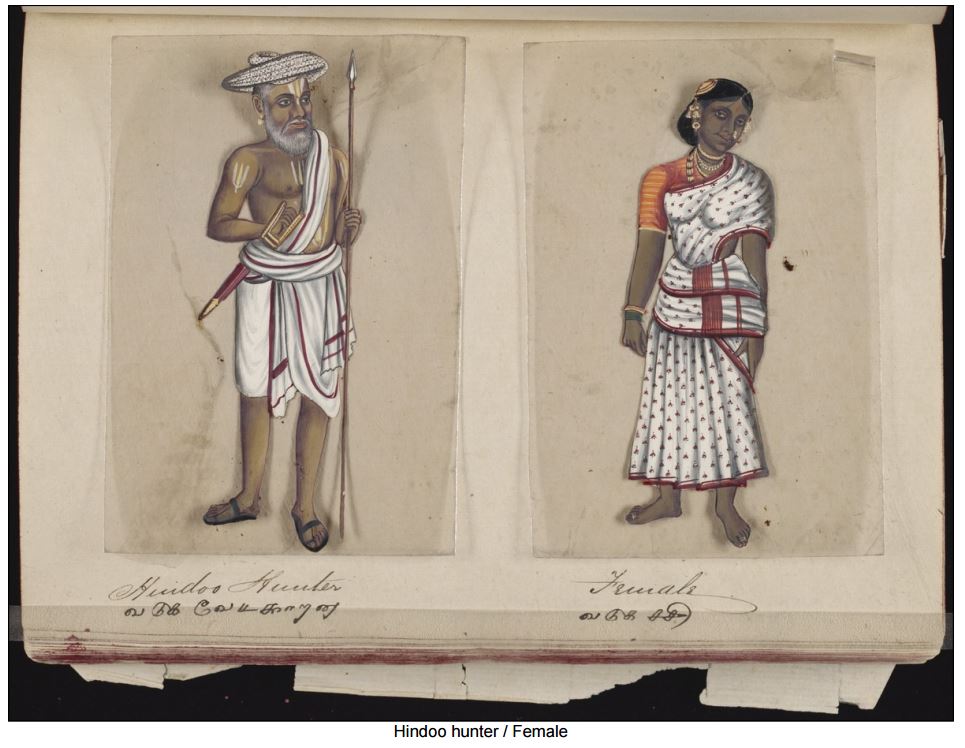 Hindoo Hunter
வடுக வேடகாறன
Female
வடுகசசி
Hindoo hunter / Female